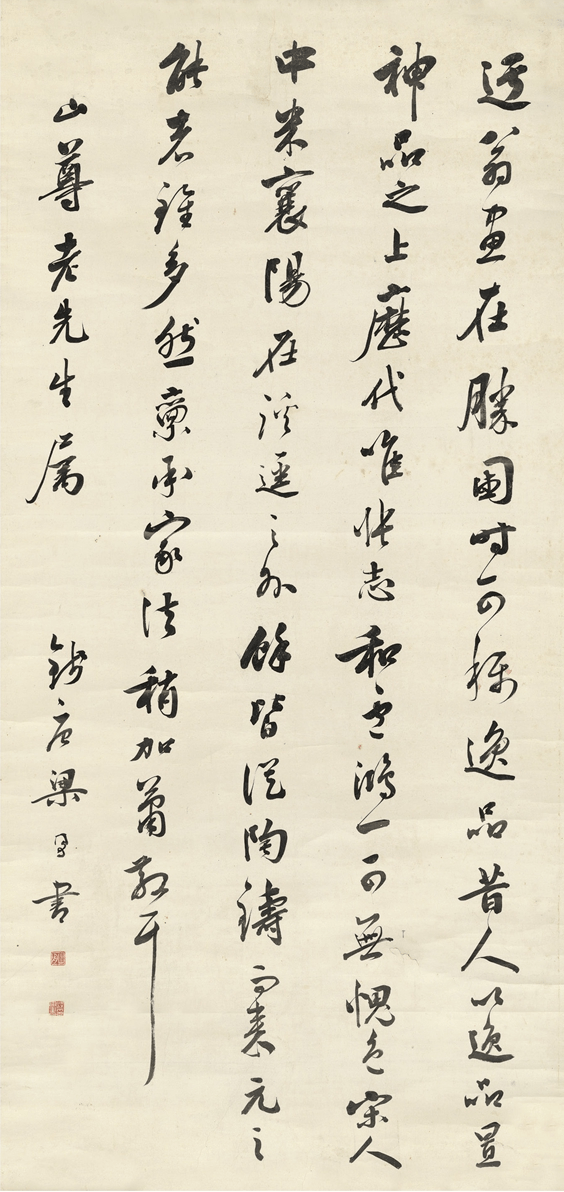 迂翁畫在勝國時可稱逸品昔人以逸品置
神品之上歷代唯張志和盧鴻一可無愧色宋人
中米襄陽在蹊逕之外餘皆從陶鑄而來元之
能者雖多然稟承家法稍加蕭散耳
山尊老先生屬
錢唐梁同書